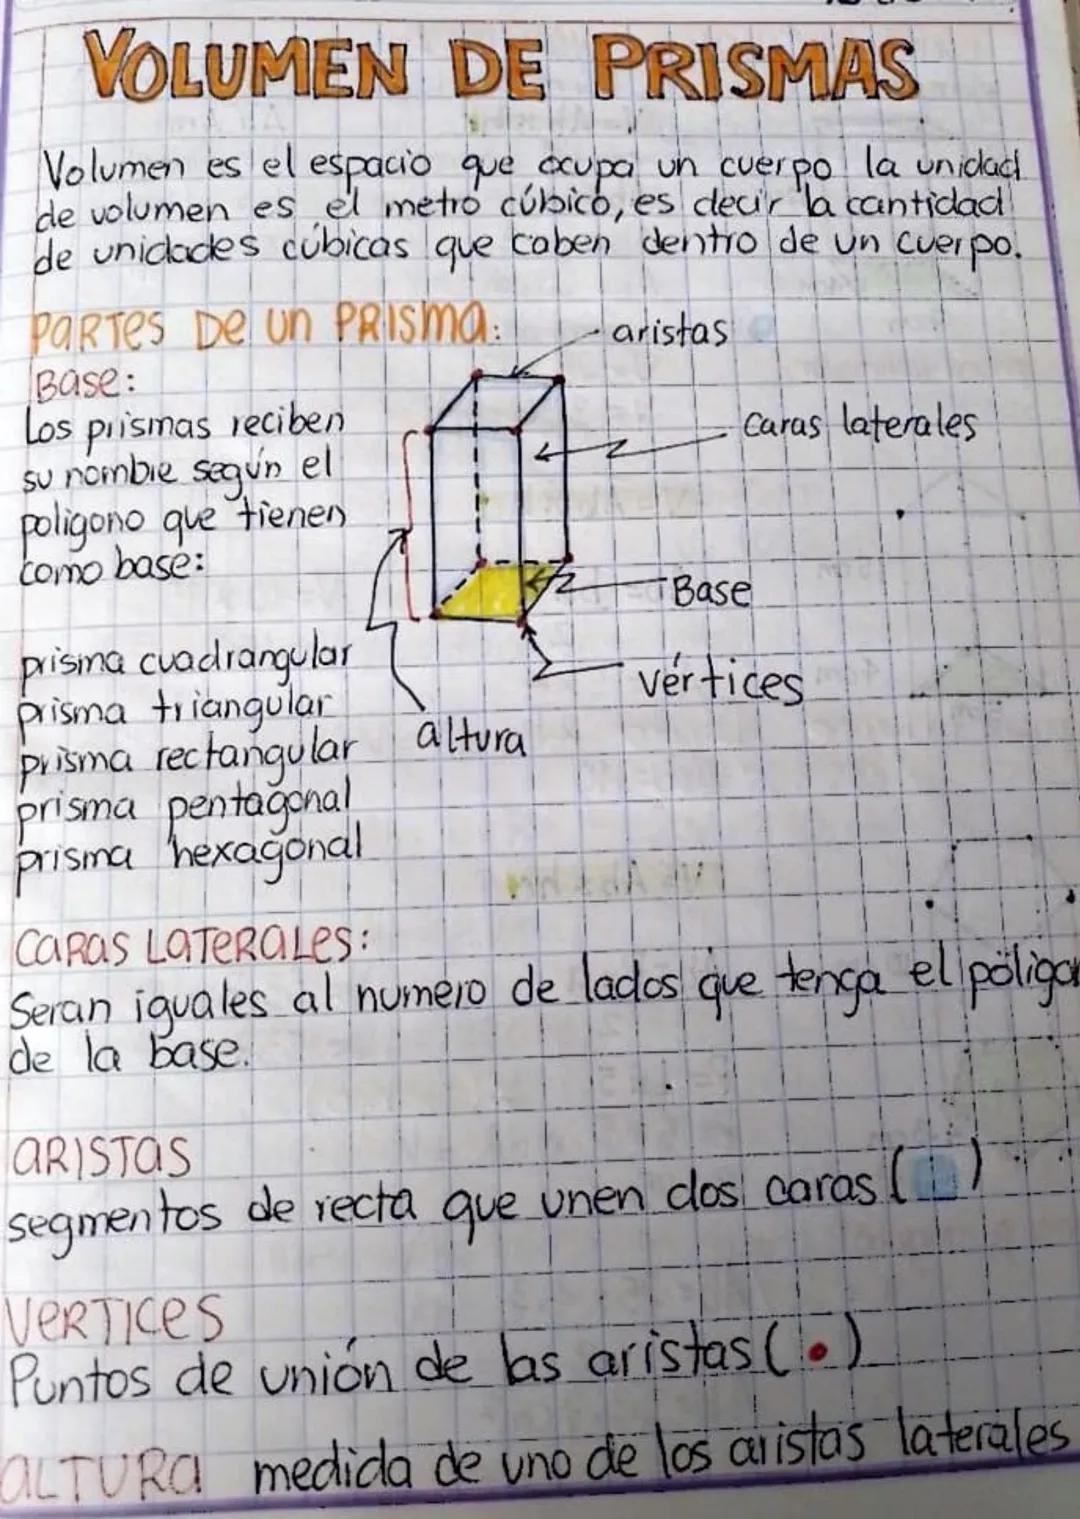 VOLUMEN DE PRISMAS
Volumen es el espacio que ocupa un cuerpo la unidad
de volumen es el metro cúbico, es decir la cantidad
de unidades cúbicas que caben dentro de un cuerpo.
PARTES DE UN PRISMA:
aristas
Base:
Los prismas reciben
su nombre según el
poligono que tienen
como base:
caras laterales
Base
vértices
altura
prisma cuadrangular
prisma triangular
prisma rectangular
prisma pentagonal
prisma hexagonal
CARAS LATERALES:
Seran iguales al numero de lados que tenga el póligon
de la base.
ARISTAS
segmentos de recta que unen dos caras ( )
VERTICES
Puntos de unión de las aristas ( • )
ALTURA medida de uno de los aristas laterales